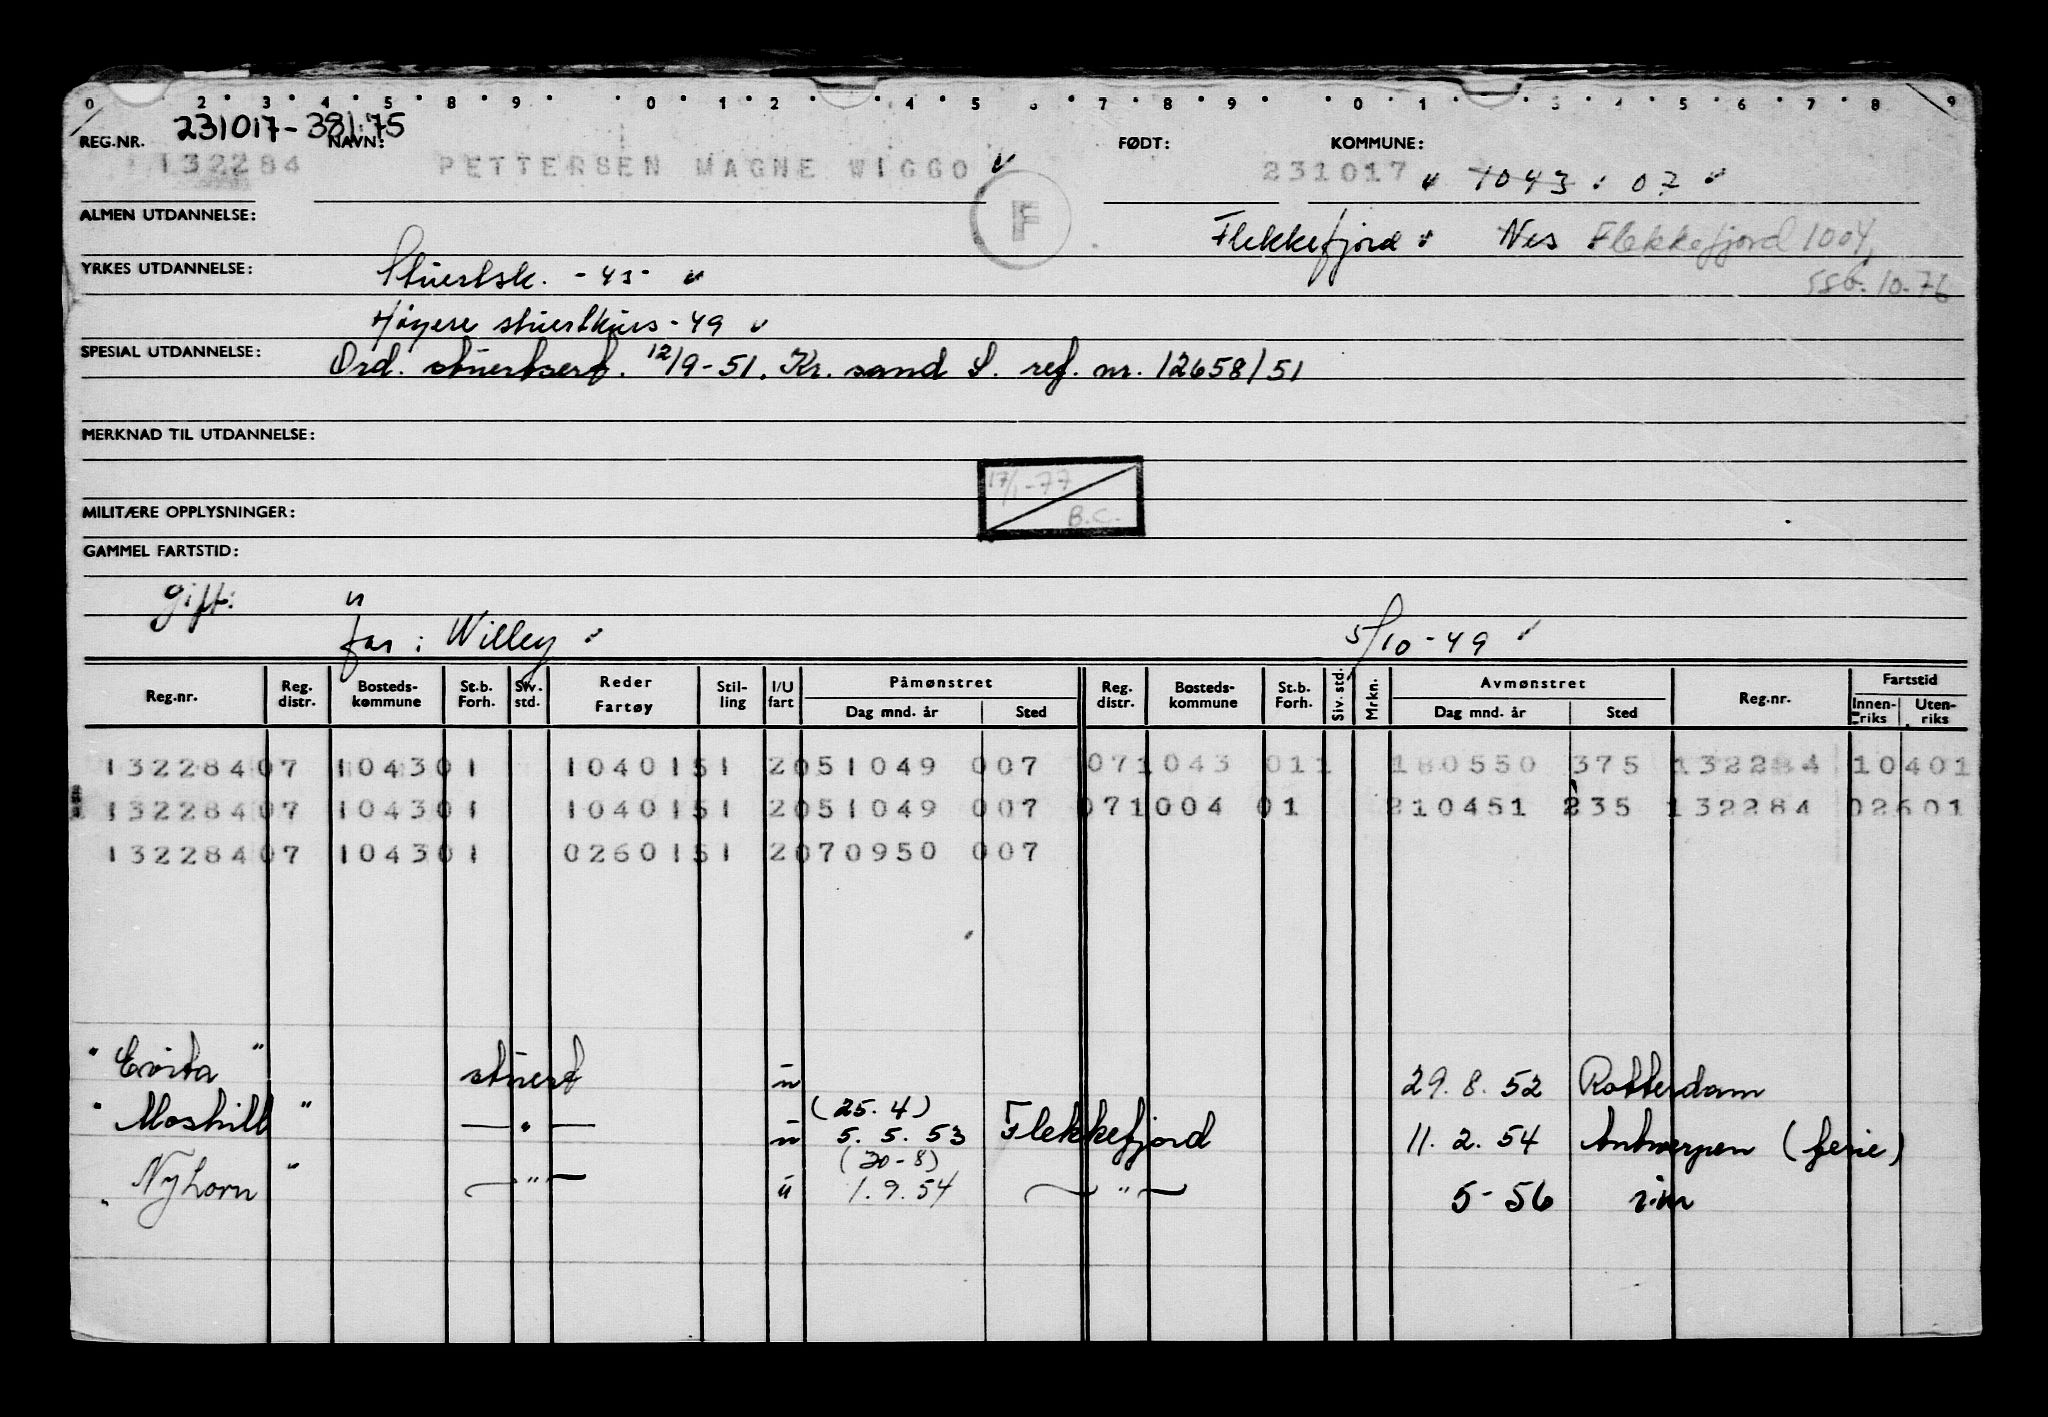 0 2 3 4 5 8 9 0 1 2 4 5 6 7 8 9 0 1 3 4 5 6 7 8 9
231017-38175
REG.NR. NAVN: FØDT: KOMMUNE:
132284 PETTERSEN MAGNE WIGGO 231017 1043 07
F
ALMEN UTDANNELSE: Flekkefjord Nes Flekkefjord 1004,
YRKES UTDANNELSE: Stuertsk. -45- 10-76
Høyere stuertkurs-49
SPESIAL UTDANNELSE: Ord. stuertsert. 12/9-51. Kr. sand S. ref. nr. 12658/51
MERKNAD TIL UTDANNELSE:
17/1-77
B.C.
MILITÆRE OPPLYSNINGER:
GAMMEL FARTSTID:
gift: u
far: Willey 5/10-49
Reg.nr. Reg. distr. Bosteds-kommune St.b. Forh. Siv. std. Reder Fartøy Stil-ling I/U fart Påmønstret Dag mnd. år Sted Reg. distr. Bosteds-kommune St.b. Forh. Siv. std. Mrkn. Avmønstret Dag mnd. år Sted Reg.nr. Fartstid Innen-riks Uten-riks
13228407 104301 1040151 2051049 007 071043 011 180550 375 132284 10401
13228407 104301 1040151 2051049 007 071004 01 210451 235 132284 02601
13228407 104301 0260151 2070950 007
"Evita" stuert u 29. 8. 52 Rotterdam
"Moshill" — " — u (25.4) 5. 5. 53 Flekkefjord 11. 2. 54 Antwerpen (ferie)
"Nyhorn" — " — u (30-8) 1. 9. 54 — " — 5-56